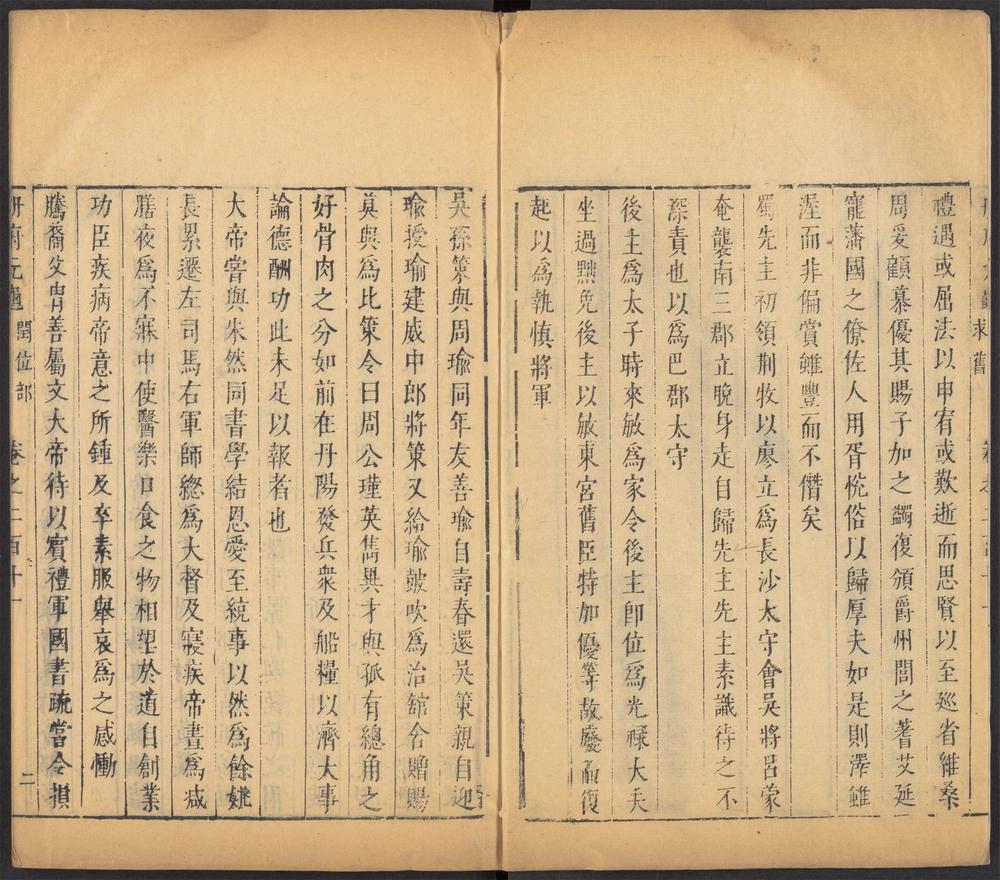 求舊
禮遇或屈法以申宥或歎逝而思賢以至廵省維桑
周爰顧慕優其賜予加之蠲復頒爵州閭之耆艾延
寵藩國之僚佐人用胥悅俗以歸厚夫如是則澤雖
渥而非偏賞雖豐而不僭矣
蜀先主初領荆牧以廖立為長沙太守會吳將呂蒙
奄襲南三郡立脫身走自歸先主先主素識待之不
深責也以為巴郡太守
後主為太子時來敏為家令後主卽位為光祿大夫
坐過黜免後主以敏東宮舊臣特加優等故廢而復
起以為執慎將軍
吳孫策與周瑜同年友善瑜自壽春還吳策親自迎
瑜授瑜建威中郎將策又給瑜鼓吹為治舘舍贈賜
莫與為比策令曰周公瑾英雋異才與孤有總角之
好骨肉之分如前在丹陽發兵衆及船糧以濟大事
論德酬功此未足以報者也
大帝嘗與朱然同書學結恩愛至統事以然為餘姚
長累遷左司馬右軍師緫為大督及寢疾帝晝為减
膳夜為不寐中使醫藥口食之物相望於道自創業
功臣疾病帝意之所鍾及卒素服舉哀為之感慟
騰裔父胄善屬文大帝待以賓禮軍國書疏嘗令損
册府元龜 閏位部 卷之二百十一 二